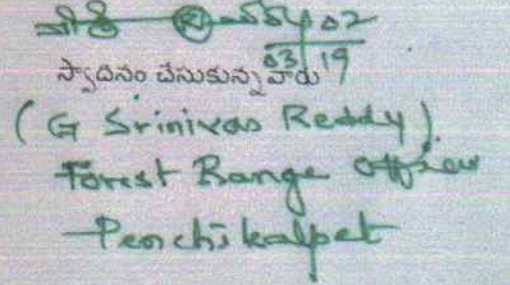 02
03/19
స్వాదీనం చేసుకున్న వారు
(G Srinivas Reddy)
Forest Range Officer
Penchikalpet